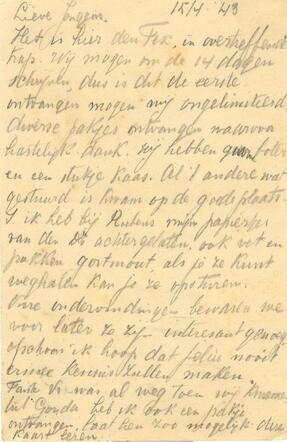 Lieve Jongens. 15/4 - 43
Het is hier den Fex, in overtreffende
trap. Wij mogen om de 14 dagen
schrijven, dus is dit de eerste
ontvangen mogen wij ongelimiteerd
diverse pakjes ontvangen waarvoor
hartelijk dank. Wij hebben geen boter
en een stukje kaas. Al 't andere wat
gestuurd is kwam op de goede plaats.
ik heb bij Rubens mijn papiertjes
van den achtergelaten, ook vet en
pakken gortmout, als je ze kunt
weghalen kan je ze opsturen.
Onze ondervindingen bewaren we
voor later ze zijn interessant genoeg
ofschoon ik hoop dat jullie nooit
ermee kennis zullen maken.
was al weg toen wij kwamen
uit Gouda heb ik ook een pakje
ontvangen. Laat hen zoo mogelijk deze
kaart lezen.